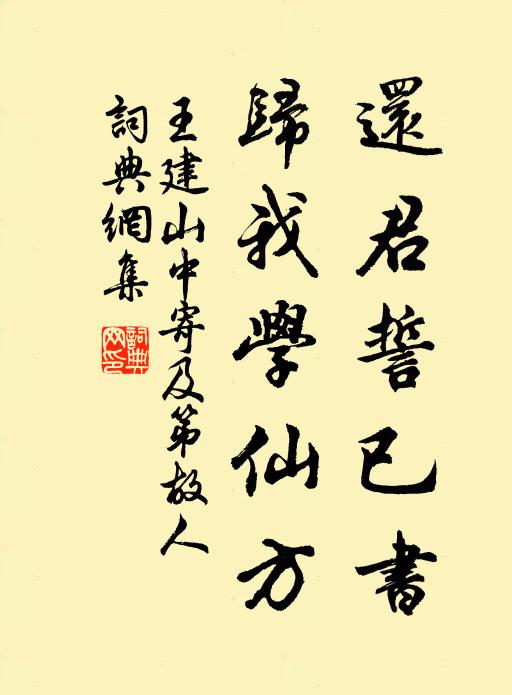 還君誓已書
歸我學仙方
王建山中寄及第故人
詞典網集
詞典網印